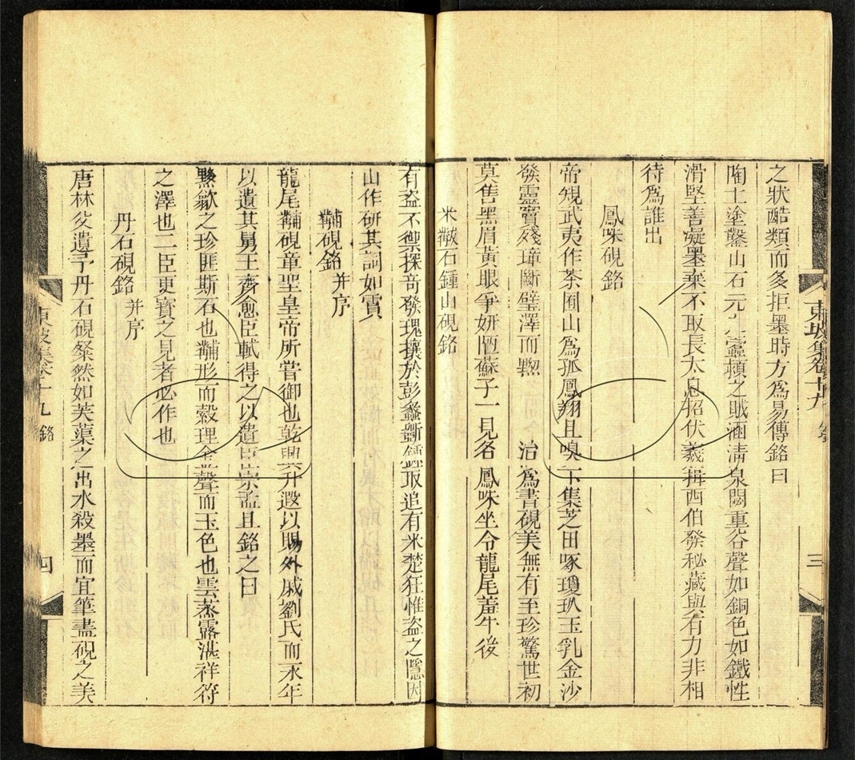 東坡集卷十九
銘
三
之狀酷類而多拒墨時方為易傳銘曰
陶土塗鑿山石元之蠹頽之賊涵清泉閟重谷聲如銅色如鐵性
滑堅善凝墨棄不取長太息招伏羲揖西伯發秘藏與有力非相
待為誰出
鳳咮硯銘
帝規武夷作茶囿山為孤鳳翔且嗅下集芝田啄瓊玖玉乳金沙
發靈竇殘璋斷璧澤而黝治為書硯美無有至珍驚世初
莫售黑眉黃眼爭妍陋蘇子一見名鳳咮坐令龍尾羞牛後
米黻石鍾山硯銘
有盜不禦探奇發瑰攘於彭蠡斲鍾取追有米楚狂惟盜之隱因
山作硏其詞如霣
黼硯銘并序
龍尾黼硯章聖皇帝所嘗御也乾興升遐以賜外戚劉氏而永年
以遺其舅王齊愈臣軾得之以遺臣宗孟且銘之曰
黟歙之珍匪斯石也黼形而縠理金聲而玉色也雲蒸露湛祥符
之澤也二臣更寶之見者必作也
丹石硯銘并序
唐林父遺予丹石硯粲然如芙蕖之出水殺墨而宜筆盡硯之美
東坡集卷十九
銘
四